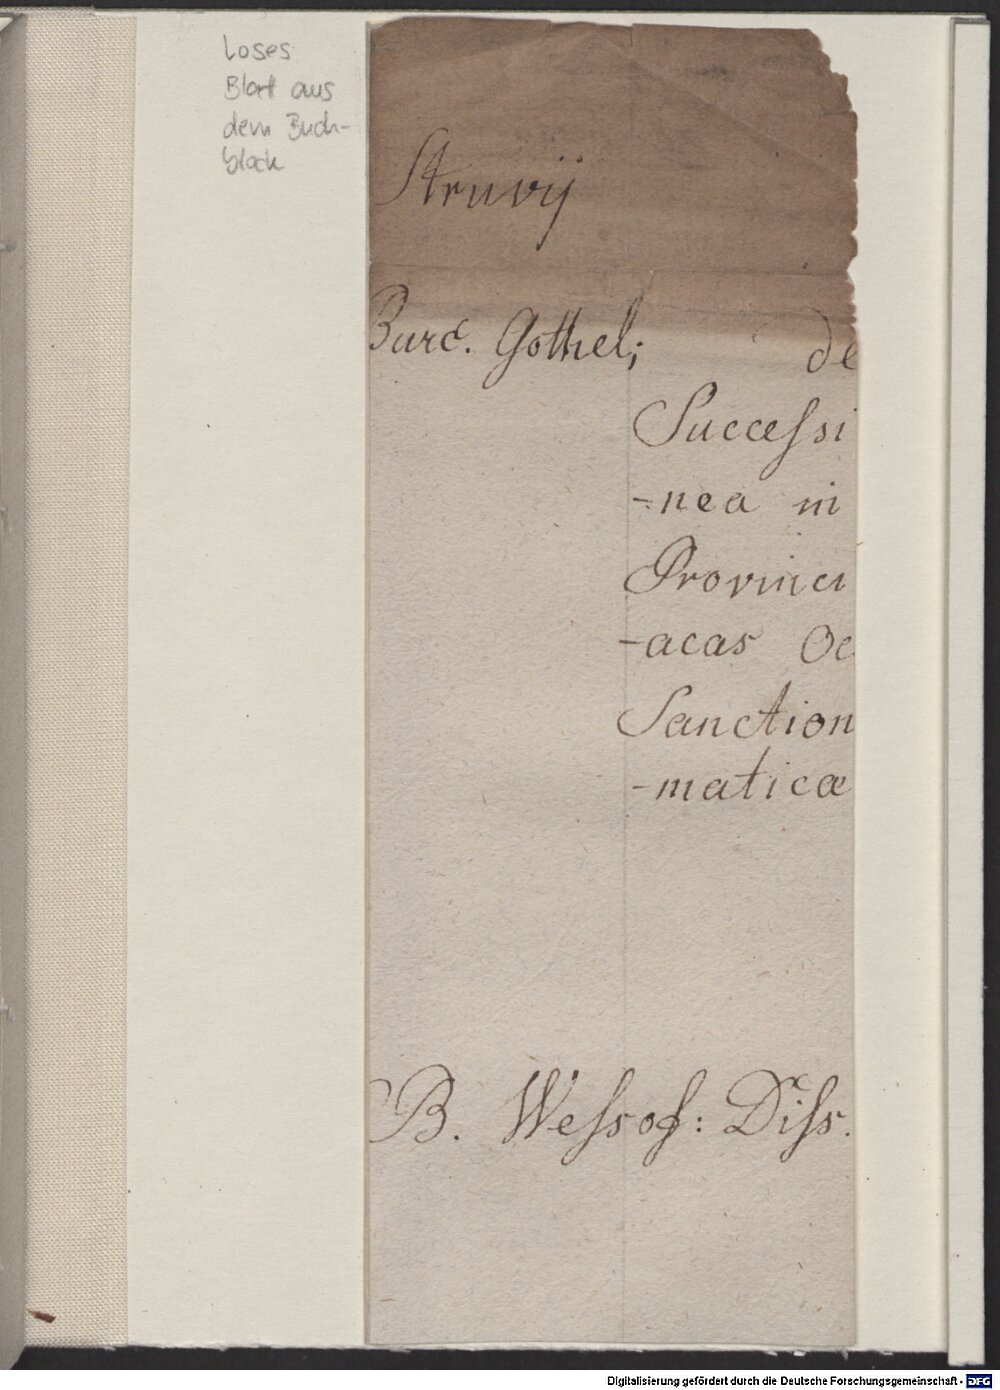 Loses
Blatt aus
dem Buch-
block
Struvij
Burc. Gothel;
de
Successi
-nea in
Provinci
-acas Oc
Sanction
-maticæ
B. Wessof: Diss.
Digitalisierung gefördert durch die Deutsche Forschungsgemeinschaft - DFG